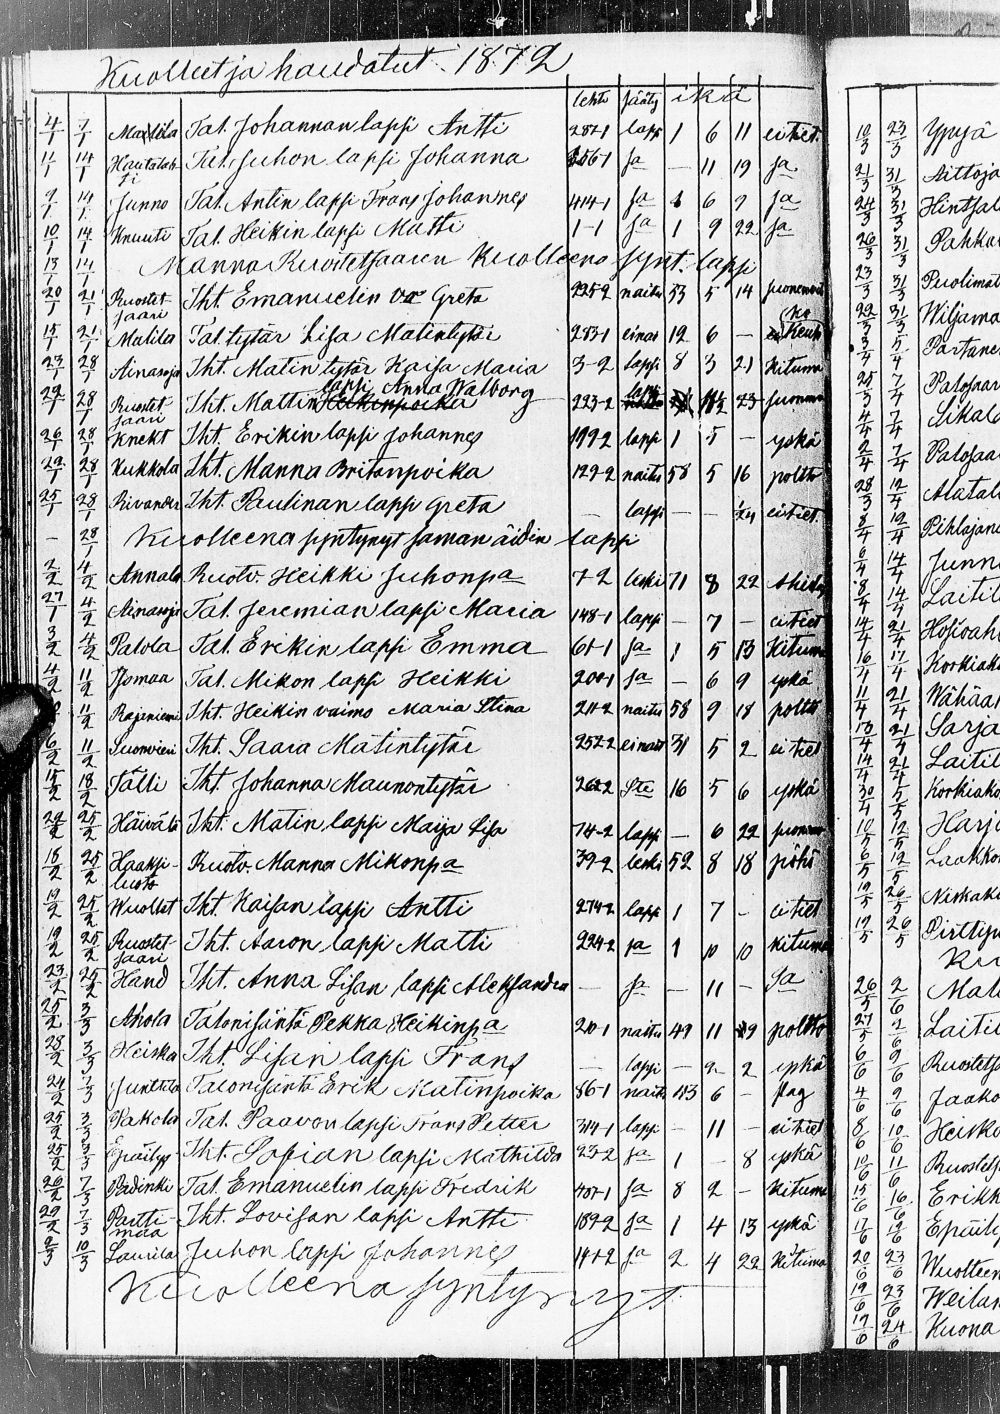 Kuolleet ja haudatut 1872
lehti sääty ikä
4/1 7/1 Mattila Tal. Johannan lapsi Antti 282-1 laps 1 6 11 ei tiet.
11/1 14/1 Hautalahti Tal. Juhon lapsi Johanna 156-1 sa — 11 19 sa
9/1 14/1 Junno Tal. Antin lapsi Frans Johannes 414-1 sa 1 6 7 sa
10/1 14/1 Knuuti Tal. Heikin lapsi Matti 1-1 sa 1 9 22 sa
13/1 14/1 Manna Ruostetsaaren kuolleena synt. lapsi
20/1 21/1 Ruostetsaari Iht. Emanuelin va Greta 225-2 naitu 53 5 14
15/1 21/1 Matila Tal. tytär Lisa Matintytär 283-1 einai 12 6 —
23/1 28/1 Ainasoja Iht. Matin tytär Kaisa Maria 3-2 lapsi 8 3 21 kituma
lapsi Anna Walborg
22/1 28/1 Ruostetsaari Iht. Mattin Heikinpoika 223-2 lapsi 23
26/1 28/1 Knekt Iht. Erikin lapsi Johannes 199-2 lapsi 1 5 — yskä
22/1 28/1 Kukkola Iht. Manna Britanpoika 129-2 naitu 58 5 16 poltto
25/1 28/1 Rivander Iht. Paulinan lapsi Greta — lapsi — — 24 ei tiet.
— 28/1 Kuolleena syntynyt saman äidin lapsi
2/2 4/2 Annala Ruotv. Heikki Juhonpa 7-2 leski 71 8 22
27/1 4/2 Ainasoja Tal. Jeremian lapsi Maria 148-1 lapsi — 7 — ei tiet
3/2 4/2 Patola Tal. Erikin lapsi Emma 61-1 sa 1 5 13 Kituma
4/2 11/2 Isomaa Tal. Mikon lapsi Heikki 200-1 sa — 6 9 yskä
11/2 Rajaniemi Iht. Heikin vaimo Maria Stina 211-2 naitu 58 9 18 poltto
6/2 11/2 Suonvieri Iht. Saara Matintytär 252-2 einait 31 5 2 ei tiet
15/2 18/2 Tälli Iht. Johanna Maunontytär 262-2 16 5 6 yskä
25/2 Häivälä Iht. Matin lapsi Maija Lisa 74-2 lapsi — 6 22
18/2 25/2 Haapsiluoto Ruotv. Manna Mikonpa 39-2 leski 52 8 18 pöhö
19/2 25/2 Wuollet Iht. Kaisan lapsi Antti 274-2 lapsi 1 7 — ei tiet
19/2 25/2 Ruostetsaari Iht. Aaron lapsi Matti 224-2 sa 1 10 10 kituma
23/2 25/2 Hand Iht. Anna Lisan lapsi Aleksandra — sa — 11 — sa
25/2 3/3 Ahola Talonisäntä Pekka Heikinpa 210-1 naitu 49 11 poltto
28/2 3/3 Heiska Iht. Lisan lapsi Frans lapsi — 2 2 yskä
24/2 3/3 Junttila Talonisäntä Erik Matinpoika 86-1 naitu 6 —
25/2 3/3 Pakola Tal. Paavon lapsi Frans Petter 314-1 lapsi — 11 — ei tiet
25/2 3/3 Epäilys Iht. Sofian lapsi Mathilda 23-2 sa 1 — 8 yskä
26/2 7/3 Tal. Emanuelin lapsi Fredrik 401-1 sa 8 2 — kituma
29/2 7/3 Perttimaa Iht. Lovisan lapsi Antti 189-2 sa 1 4 13 yskä
2/3 10/3 Laurila Juhon lapsi Johannes 141-2 sa 2 4 22 kituma
Kuolleena syntynyt
10/3 23/3 Ypyä
21/3 31/3 Aittoja
24/3 31/3 Hintsal
26/3 31/3 Pahka
23/3 31/3 Puolimat
22/3 31/3 Wiljama
3/4 5/4 Partane
25/3 7/4 Palosaar
4/4 7/4 Sikalo
2/4 7/4 Palosaa
28/3 12/4 Alatal
8/4 12/4 Pihlajam
6/4 14/4 Junn
8/4 14/4 Laitil
14/4 21/4
16/4 17/4 Korkiak
11/4 21/4 Wähäa
13/4 21/4 Sarja
14/4 21/4 Laitil
30/4 5/5 Korkiako
10/5 12/5 Harj
6/5 12/5 Laakko
19/5 26/5 Niskaka
19/5 26/5 Pirttij
26/5 2/6 Mat
27/5 2/6 Laitil
6/6 9/6 Ruostets
4/6 9/6 Jaako
8/6 10/6 Heisk
10/6 11/6 Ruostets
15/6 16/6 Erikk
17/6 Epäily
20/6 23/6 Wuolteen
19/6 23/6 Weilan
17/6 24/6 Kuona